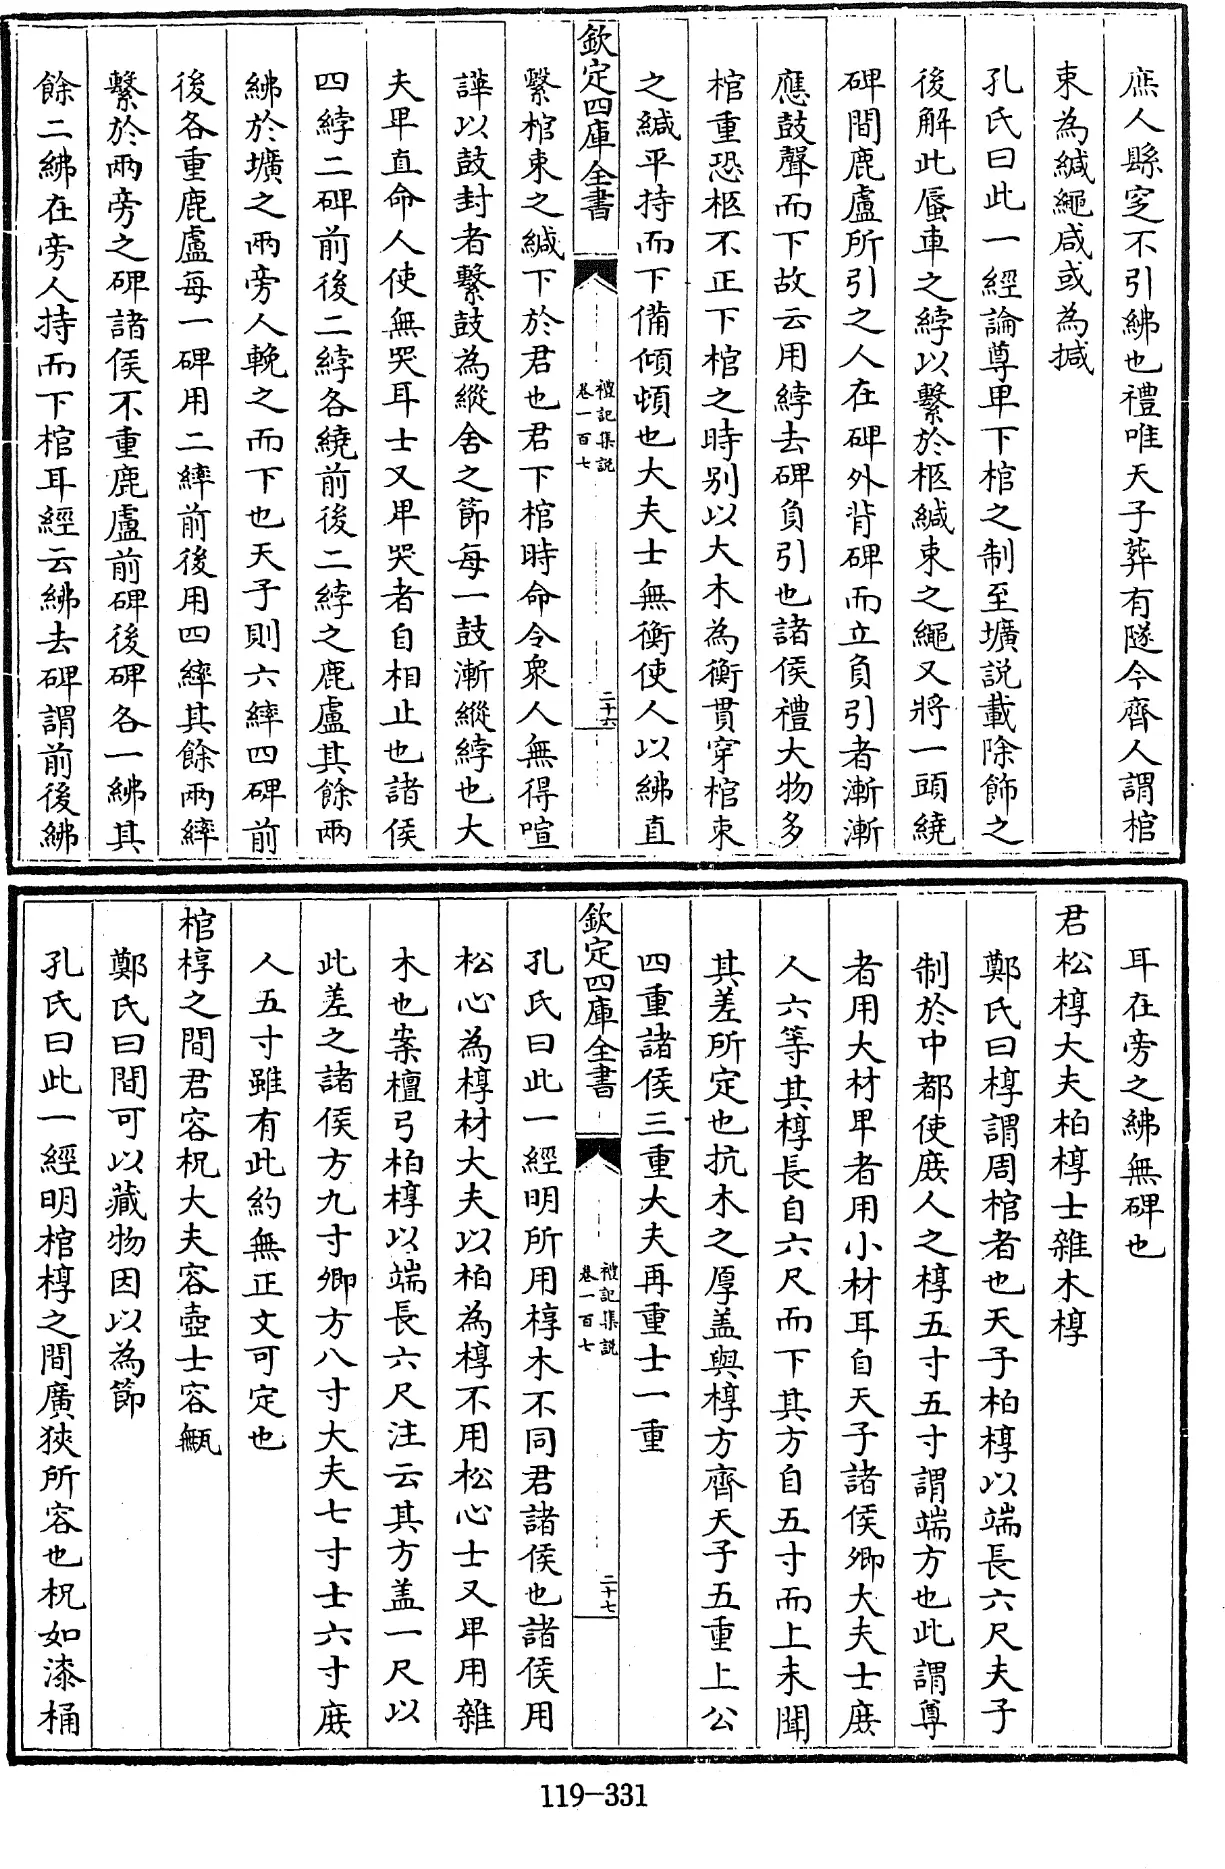 庶人縣窆不引紼也禮唯天子葬有隧今齊人謂棺
束為緘繩咸或為椷
孔氏曰此一經論尊卑下棺之制至壙説載除飾之
後解此蜃車之綍以繫於柩緘束之繩又將一頭繞
碑間鹿盧所引之人在碑外背碑而立負引者漸漸
應鼓聲而下故云用綍去碑負引也諸侯禮大物多
棺重恐柩不正下棺之時别以大木為衡貫穿棺束
之緘平持而下備傾頓也大夫士無衡使人以紼直
欽定四庫全書
禮記集説
卷一百七
二十六
繫棺束之緘下於君也君下棺時命令衆人無得喧
譁以鼓封者繫鼓為縱舍之節每一鼓漸縱綍也大
夫卑直命人使無哭耳士又卑哭者自相止也諸侯
四綍二碑前後二綍各繞前後二綍之鹿盧其餘兩
紼於壙之兩旁人輓之而下也天子則六繂四碑前
後各重鹿盧每一碑用二繂前後用四繂其餘兩繂
繫於兩旁之碑諸侯不重鹿盧前碑後碑各一紼其
餘二紼在旁人持而下棺耳經云紼去碑謂前後紼
耳在旁之紼無碑也
君松椁大夫柏椁士雜木椁
鄭氏曰椁謂周棺者也天子柏椁以端長六尺夫子
制於中都使庻人之椁五寸五寸謂端方也此謂尊
者用大材卑者用小材耳自天子諸侯卿大夫士庻
人六等其椁長自六尺而下其方自五寸而上未聞
其差所定也抗木之厚盖與椁方齊天子五重上公
四重諸侯三重大夫再重士一重
欽定四庫全書
禮記集説
卷一百七
二十七
孔氏曰此一經明所用椁木不同君諸侯也諸侯用
松心為椁材大夫以柏為椁不用松心士又卑用雜
木也案檀弓柏椁以端長六尺注云其方盖一尺以
此差之諸侯方九寸卿方八寸大夫七寸士六寸庻
人五寸雖有此約無正文可定也
棺椁之間君容柷大夫容壺士容甒
鄭氏曰間可以藏物因以為節
孔氏曰此一經明棺椁之間廣狹所容也柷如漆桶
119-331